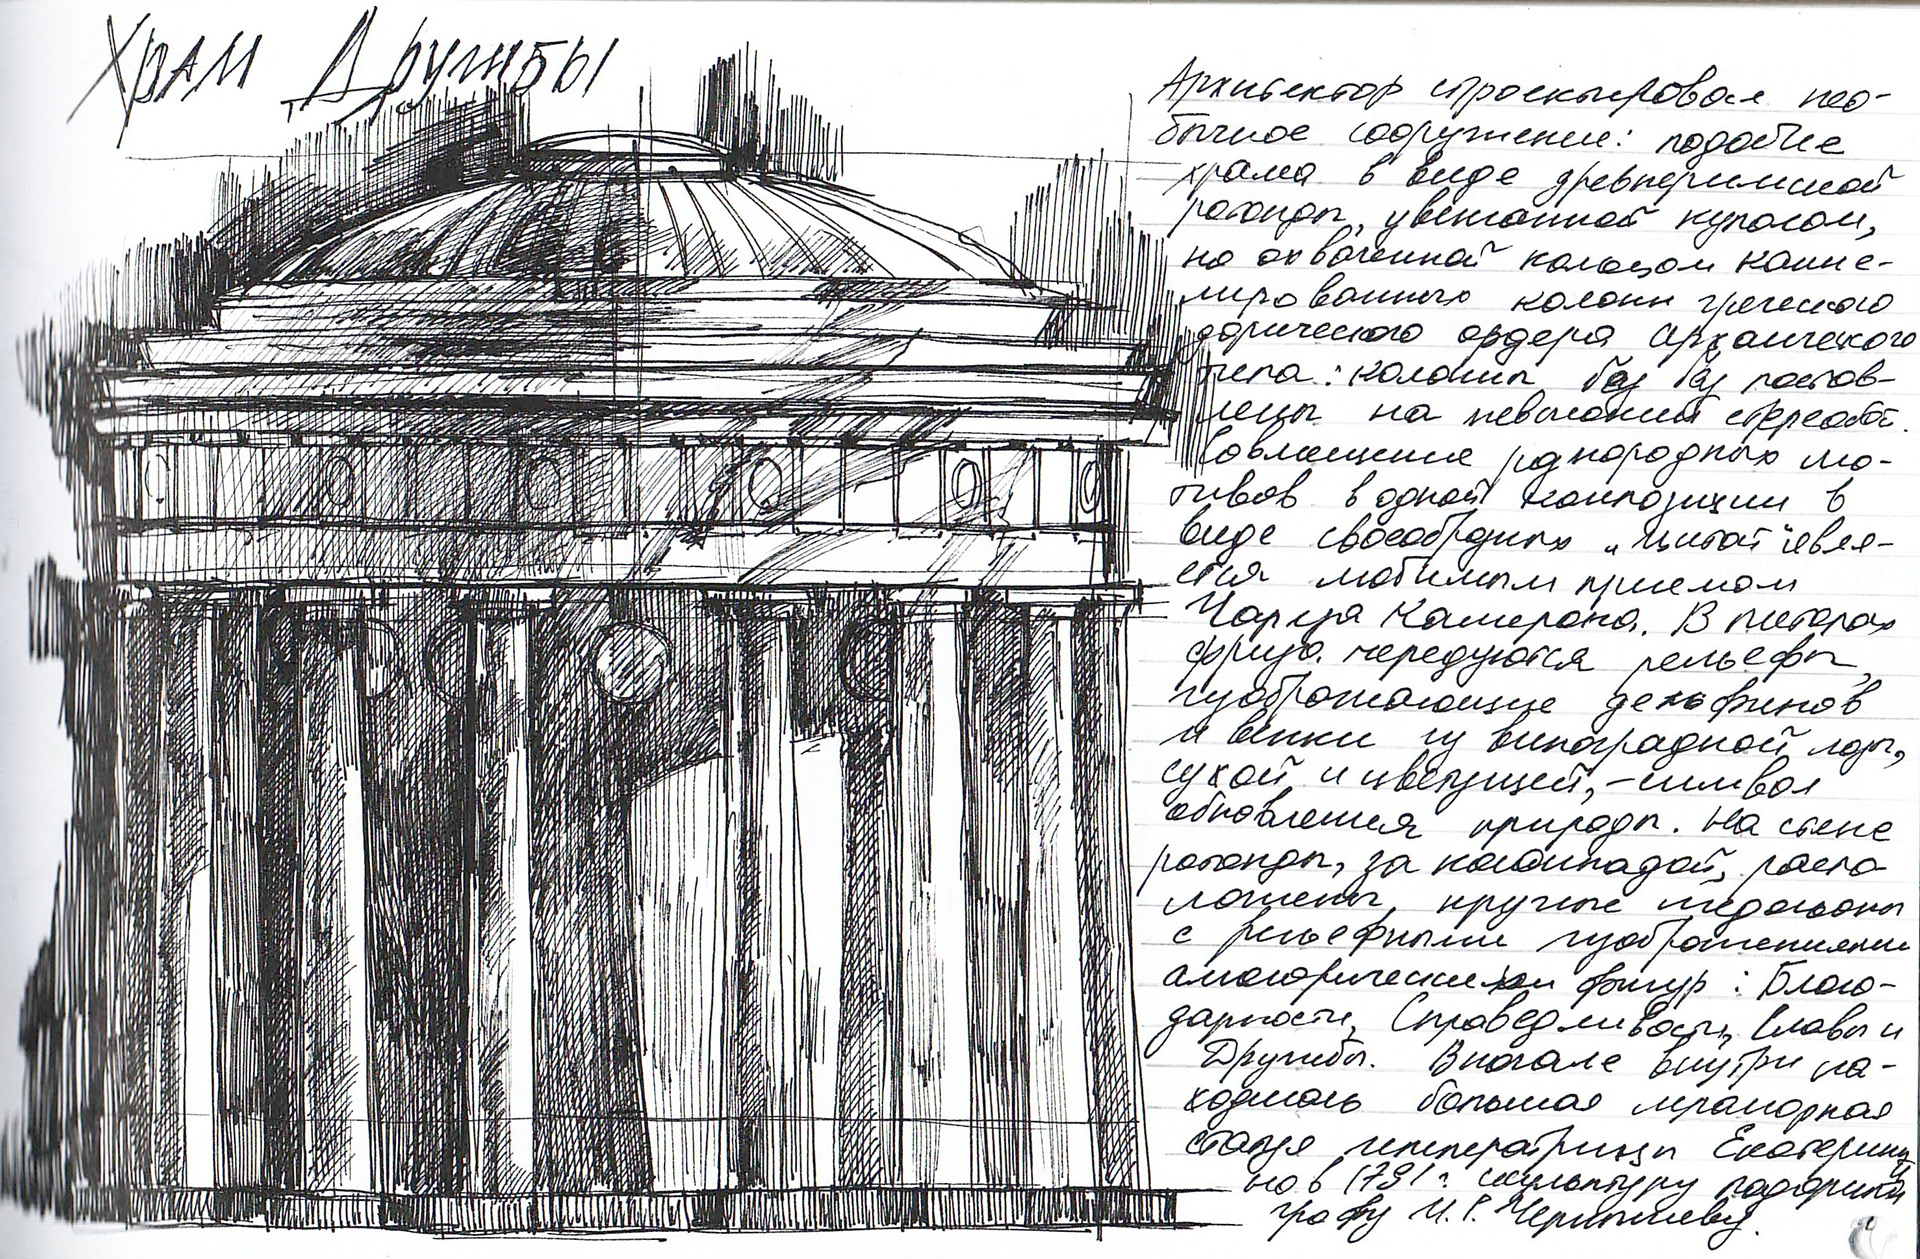 Храм Дружбы
Архитектор спроектировал нео-
бычное сооружение: подобие
храма в виде древнеримской
ротонды, увенчанной куполом,
но охваченной кольцом канне-
лированных колонн греческого
дорического ордера архаического
типа: колонны без баз постав-
лены на невысокий стереобат.
Совмещение разнородных мо-
тивов в одной композиции в
виде своеобразных „цитат" явля-
ется любимым приемом
Чарлза Камерона. В метопах
фриза чередуются рельефы,
изображающие дельфинов
и венки из виноградной лозы,
сухой и цветущей, - символ
обновления природы. На стене
ротонды, за колоннадой, распо
ложены круглые медальоны
с рельефными изображениями
аллегорических фигур: Благо-
дарности, Справедливости, Славы и
Дружбы. Вначале внутри на-
ходилась большая мраморная
статуя императрицы Екатерины II
но в 1791 г. скульптуру подарили
графу И. Г. Чернышеву.